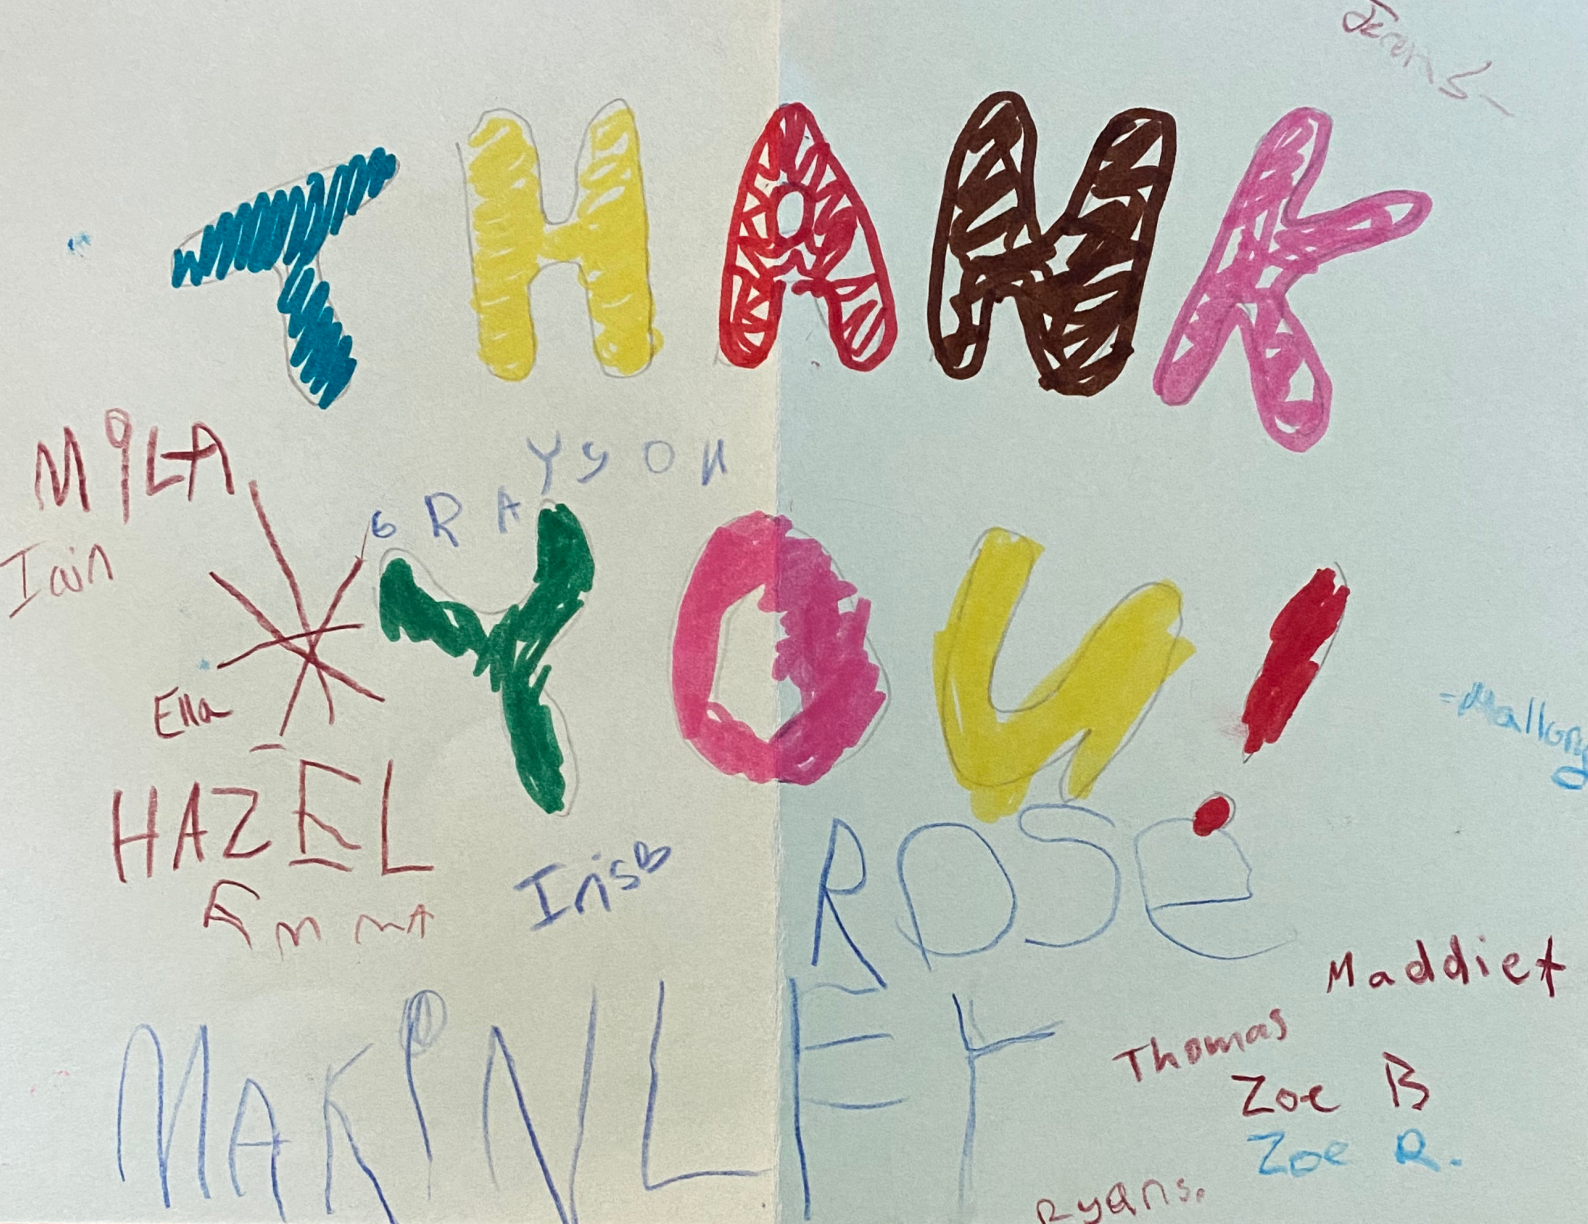 THANK
MiLA
GRAYSON
Iain
YOU!
Ella
-Mallory
HAZEL
Iris B
ROSe
EmmA
Maddie t
MAKiNLEY
Thomas
Zoe B
Zoe R.
Ryan s.